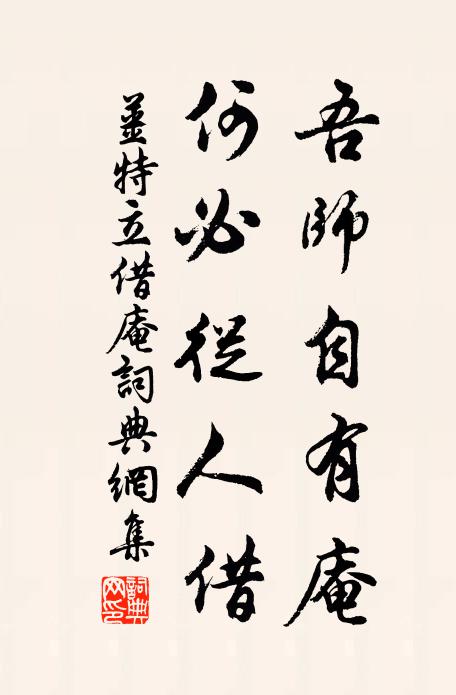 吾師自有庵
何必從人借
姜特立借庵詞典網集
詞典网印